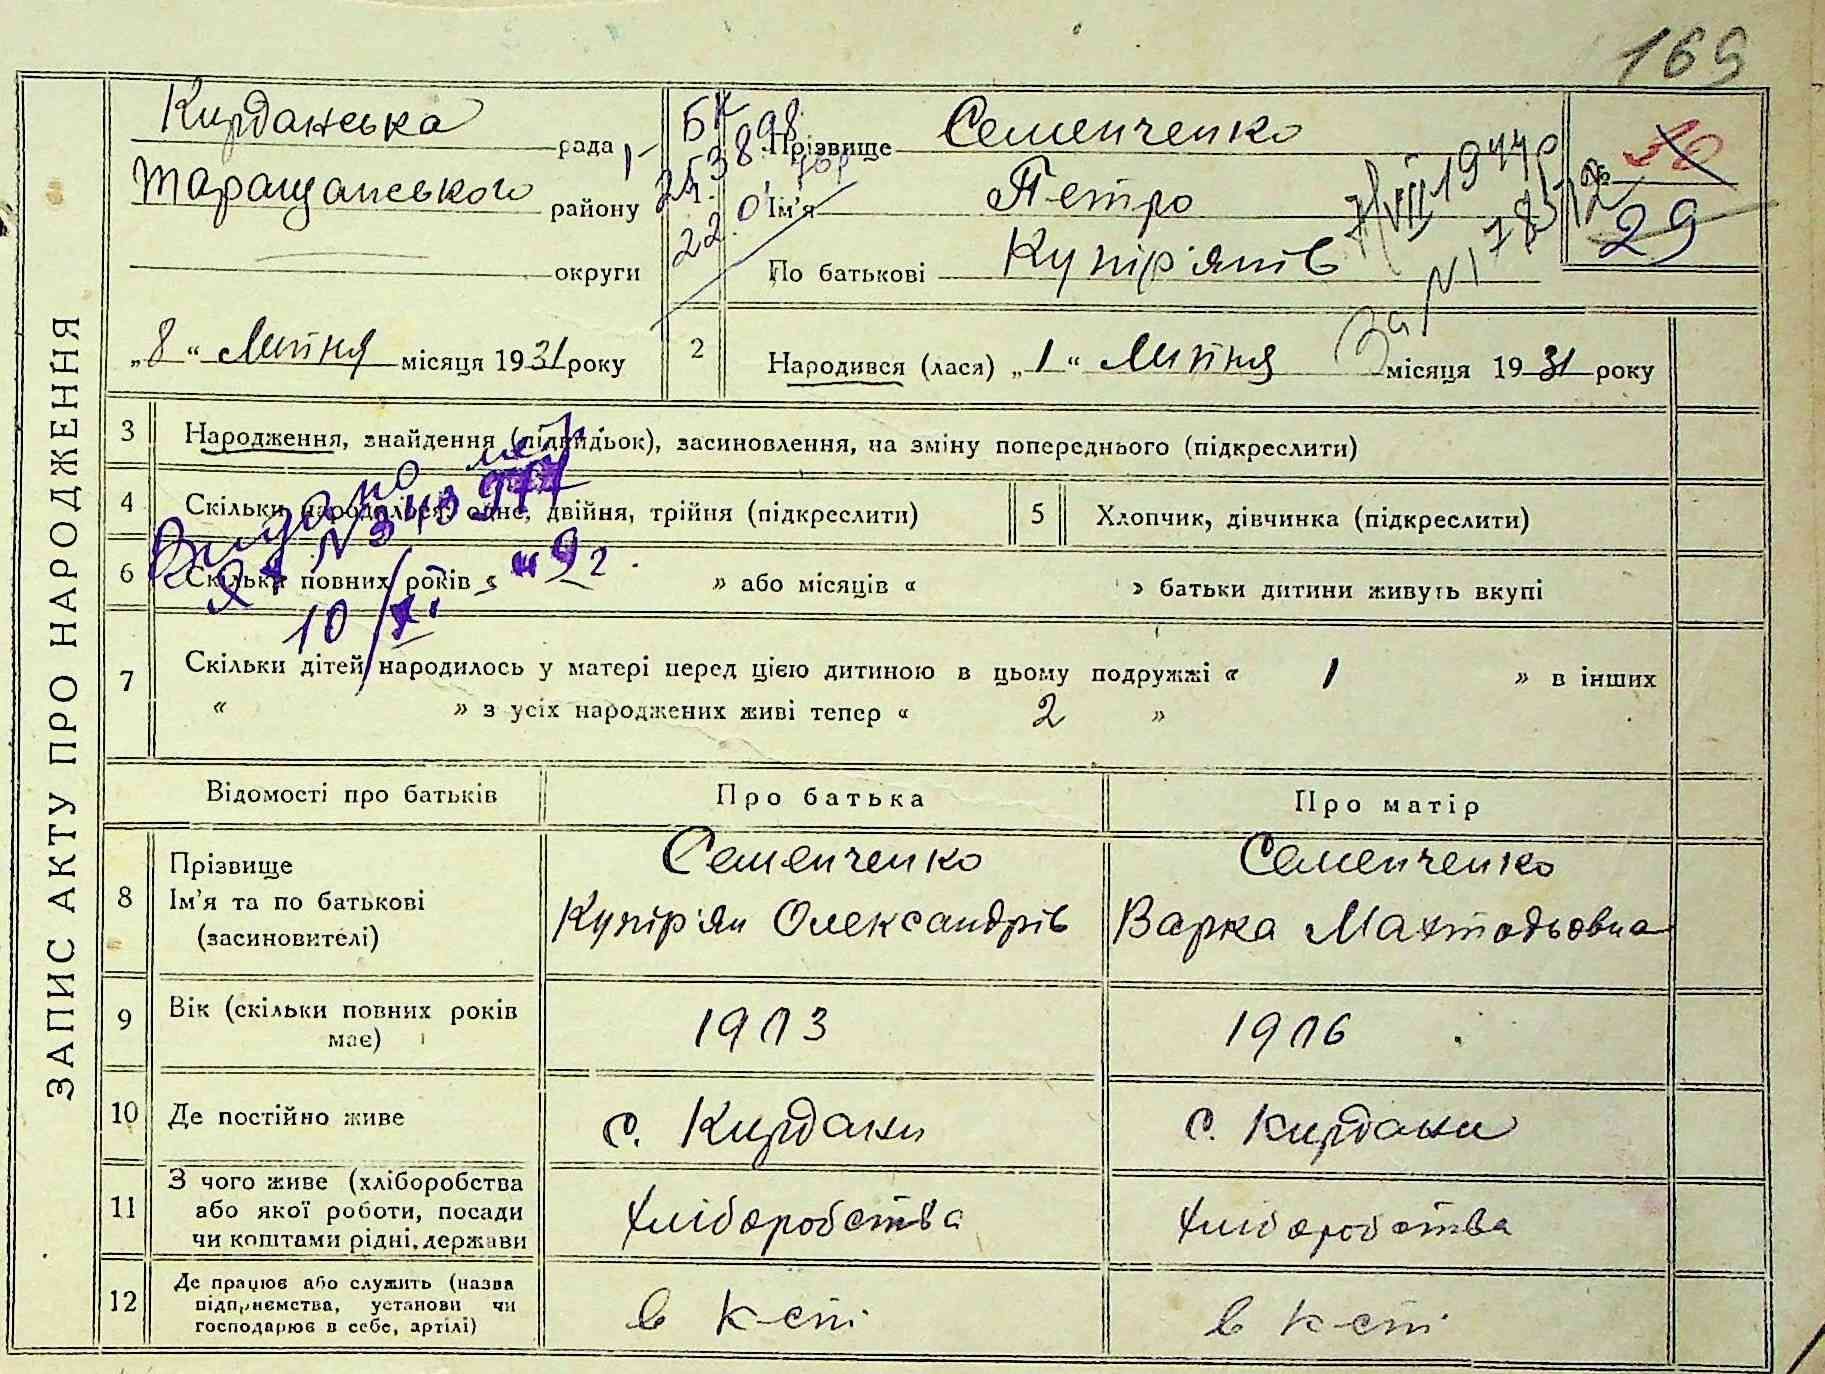 169
ЗАПИС АКТУ ПРО НАРОДЖЕННЯ
Кирданська рада
Таращанського району
округи
„8“ Липня місяця 1931 року
1
Прізвище Семенченко
Ім'я Петро
По батькові Купір'янів
№ 30
29
2 Народився (лася) „1“ Липня місяця 1931 року
3 Народження, знайдення (підкидьок), засиновлення, на зміну попереднього (підкреслити)
4 Скільки народилося: одне, двійня, трійня (підкреслити)
5 Хлопчик, дівчинка (підкреслити)
Видано
6 Скільки повних років « » або місяців « » батьки дитини живуть вкупі
7 Скільки дітей народилось у матері перед цією дитиною в цьому подружжі « 1 » в інших
« » з усіх народжених живі тепер « 2 »
Відомості про батьків Про батька Про матір
8 Прізвище
Ім'я та по батькові
(засиновителі)
Семенченко
Купір'ян Олександрів
Семенченко
Варка
9 Вік (скільки повних років має)
1903
1906
10 Де постійно живе
с. Кирдани
с. Кирдани
11 З чого живе (хліборобства
або якої роботи, посади
чи коштами рідні, держави
хліборобства
хліборобства
12 Де працює або служить (назва
підприємства, установи чи
господарює в себе, артілі)
в к-сті
в к-сті